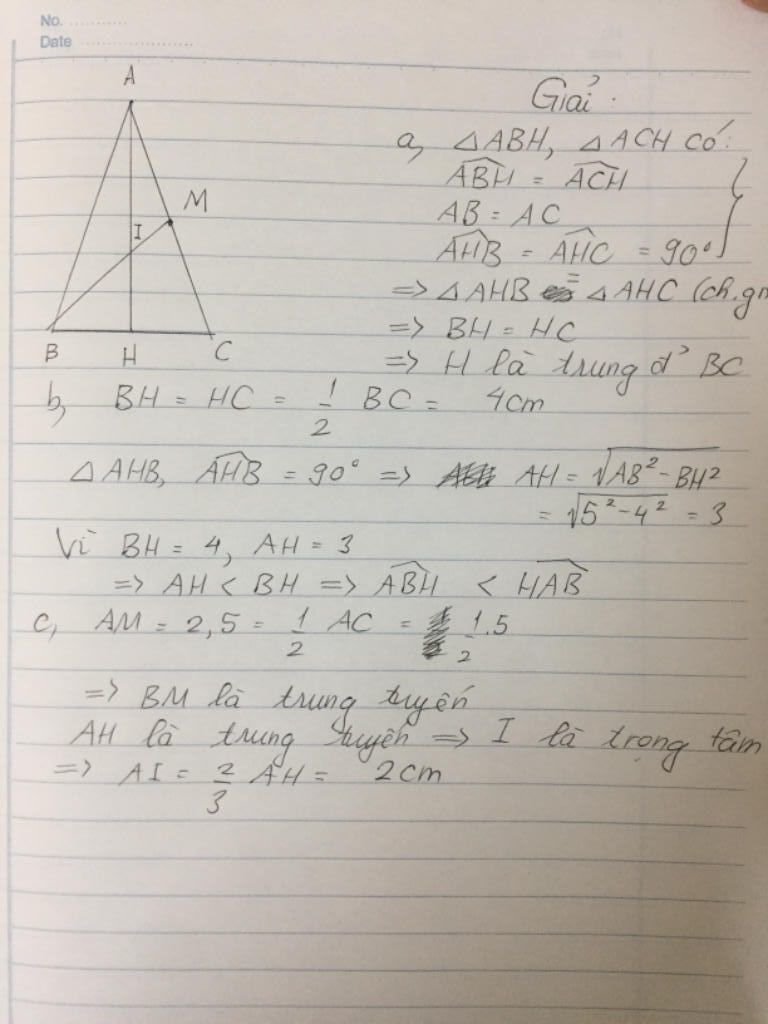 No. ............
Date ........................
A
M
I
B H C
Giải :
a, △ABH, △ACH có:
ABH = ACH
AB = AC
AHB = AHC = 90°
=> △AHB = △AHC (ch.gn
=> BH = HC
=> H là trung đ' BC
b, BH = HC = 1/2 BC = 4cm
△AHB, AHB = 90° => AH = √AB² - BH²
= √5² - 4² = 3
Vì BH = 4, AH = 3
=> AH < BH => ABH < HAB
c, AM = 2,5 = 1/2 AC = 1/2 .5
=> BM là trung tuyến
AH là trung tuyến => I là trọng tâm
=> AI = 2/3 AH = 2cm